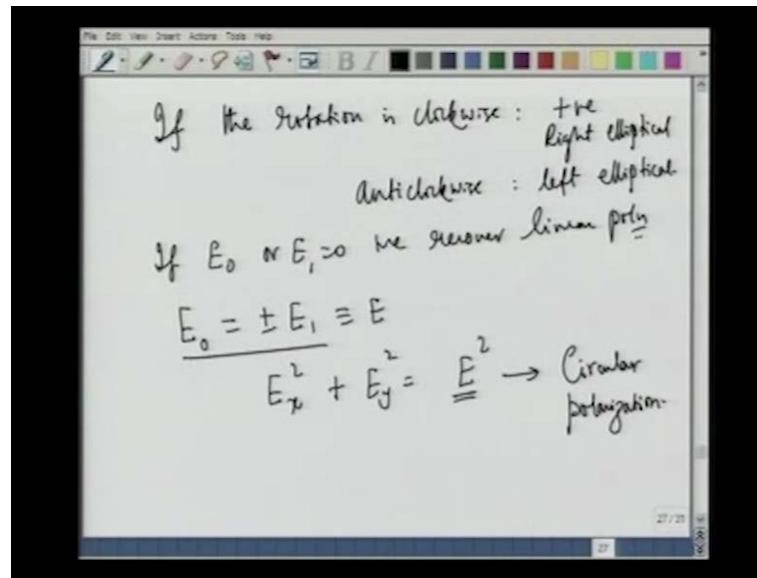 File Edit View Insert Actions Tools Help
If the rotation is clockwise : +ve
Right elliptical
Anticlockwise : left elliptical
If E₀ or E₁ = 0 we recover linear poln
E₀ = ± E₁ ≡ E
Eₓ² + E_y² = E² → Circular
polarization.
27/31
27